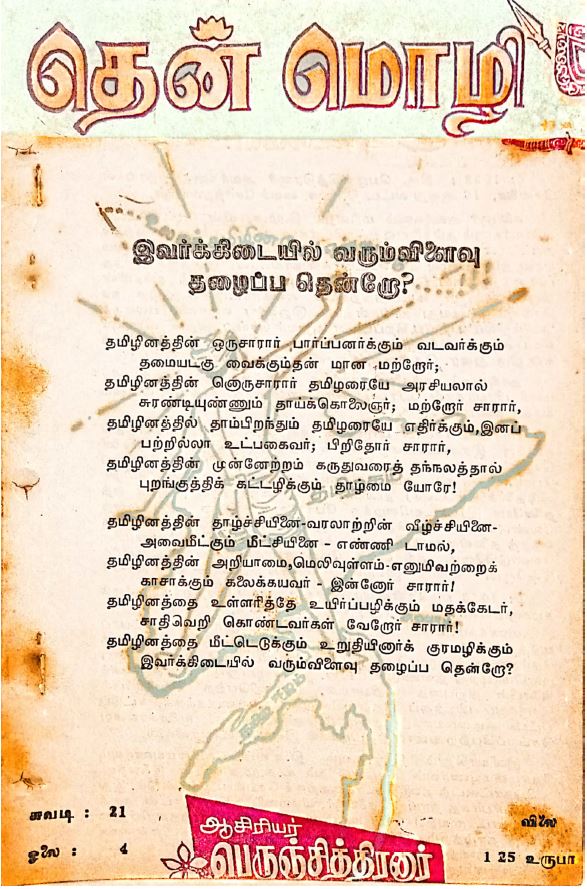 தென் மொழி
இவர்க்கிடையில் வரும்விளைவு
தழைப்ப தென்றோ?
தமிழினத்தின் ஒருசாரார் பார்ப்பனர்க்கும் வடவர்க்கும்
தமையடகு வைக்கும்தன் மான மற்றோர்;
தமிழினத்தின் னொருசாரார் தமிழரையே அரசியலால்
சுரண்டியுண்ணும் தாய்க்கொலைஞர்; மற்றோர் சாரார்,
தமிழினத்தில் தாம்பிறந்தும் தமிழரையே எதிர்க்கும்,இனப்
பற்றில்லா உட்பகைவர்; பிறிதோர் சாரார்,
தமிழினத்தின் முன்னேற்றம் கருதுவரைத் தந்நலத்தால்
புறங்குத்திக் கட்டழிக்கும் தாழ்மை யோரே!
தமிழினத்தின் தாழ்ச்சியினை-வரலாற்றின் வீழ்ச்சியினை-
அவைமீட்கும் மீட்சியினை - எண்ணி டாமல்,
தமிழினத்தின் அறியாமை,மெலிவுள்ளம்-எனுமிவற்றைக்
காசாக்கும் கலைக்கயவர் - இன்னோர் சாரார்!
தமிழினத்தை உள்ளரித்தே உயிர்ப்பழிக்கும் மதக்கேடர்,
சாதிவெறி கொண்டவர்கள் வேறோர் சாரார்!
தமிழினத்தை மீட்டெடுக்கும் உறுதியினார்க் குரமழிக்கும்
இவர்க்கிடையில் வரும்விளைவு தழைப்ப தென்றோ?
சுவடி : 21
ஓலை : 4
ஆசிரியர்
பெருஞ்சித்திரனார்
விலை
1 25 உருபா